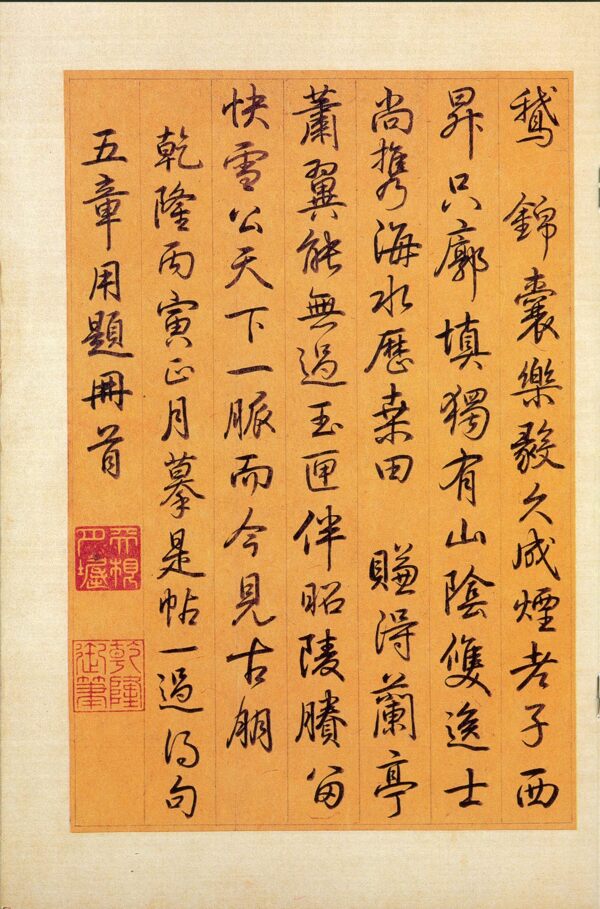 鵝　錦囊樂毅久成煙老子西
昇只廓填獨有山陰雙逸士
尚携海水歷桑田　賺得蘭亭
蕭翼能無過玉匣伴昭陵賸留
快雪公天下一脈而今見古朋
乾隆丙寅正月摹是帖一過得句
五章用題冊首
乾隆御筆